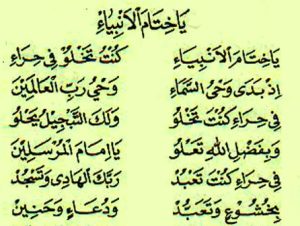 يَاخِتَامَ الْاَنْبِيَاءِ
يَاخِتَامَ الْاَنْبِيَاءِ كُنْتَ تَخْلُوْ فِى حِرَاءِ
اِذْ بَدَى وَحْىُ السَّمَاءِ وَحْىُ رَبِّ الْعَالَمِيْنَ
فِى حِرَاءِ كُنْتَ تَخْلُوْ وَلَكَ التَّبْجِيْلُ يَحْلُوْ
وَبِفَضْلِ اللهِ تَعْلُوْ يَااِمَامَ الْمُرْسَلِيْنَ
فِى حِرَاءِ كُنْتَ تَعْبُدْ رَبَّكَ الْهَادِى وَتَسْجُدْ
بِخُشُوْعٍ وَتَعَبُّدْ وَدُعَاءٍ وَحَنِيْنِ